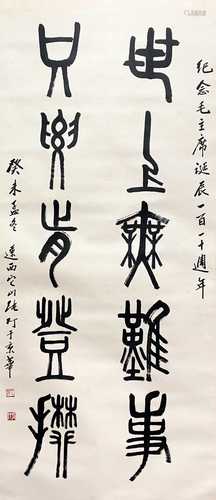 纪念毛主席诞辰一百一十週年
世上無難事
只要肯登攀
癸未孟冬
于京華